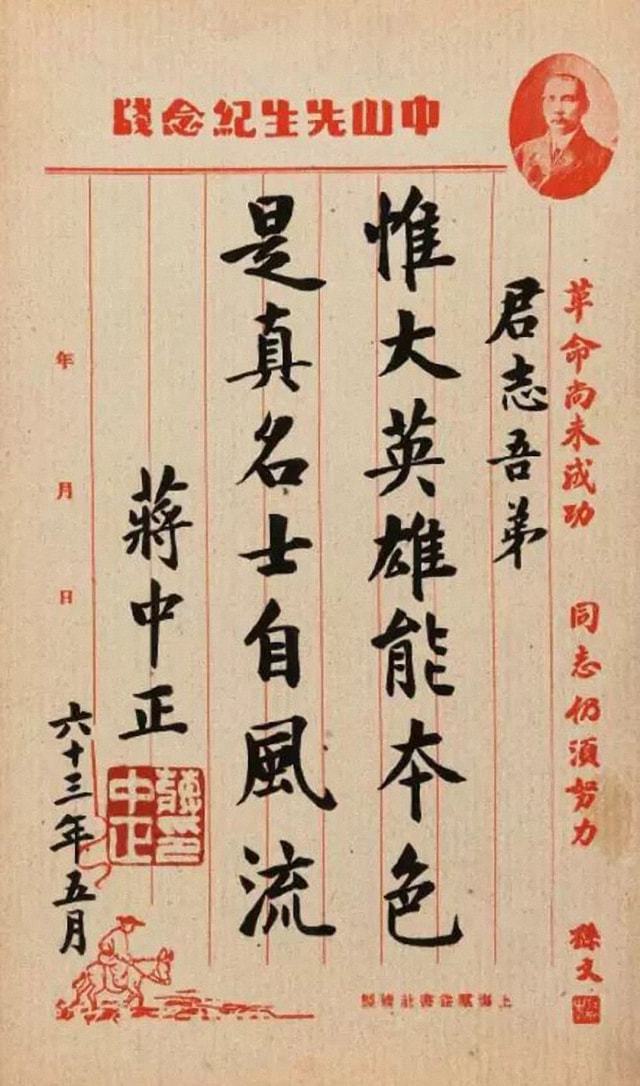 中山先生紀念牋
革命尚未成功 同志仍須努力
孫文
君志吾弟
惟大英雄能本色
是真名士自風流
蔣中正
蔣中正印
六十三年五月
年 月 日
上海羣益書社精製